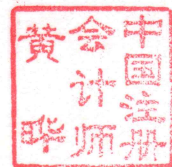 中国注册
会计师
黄晔